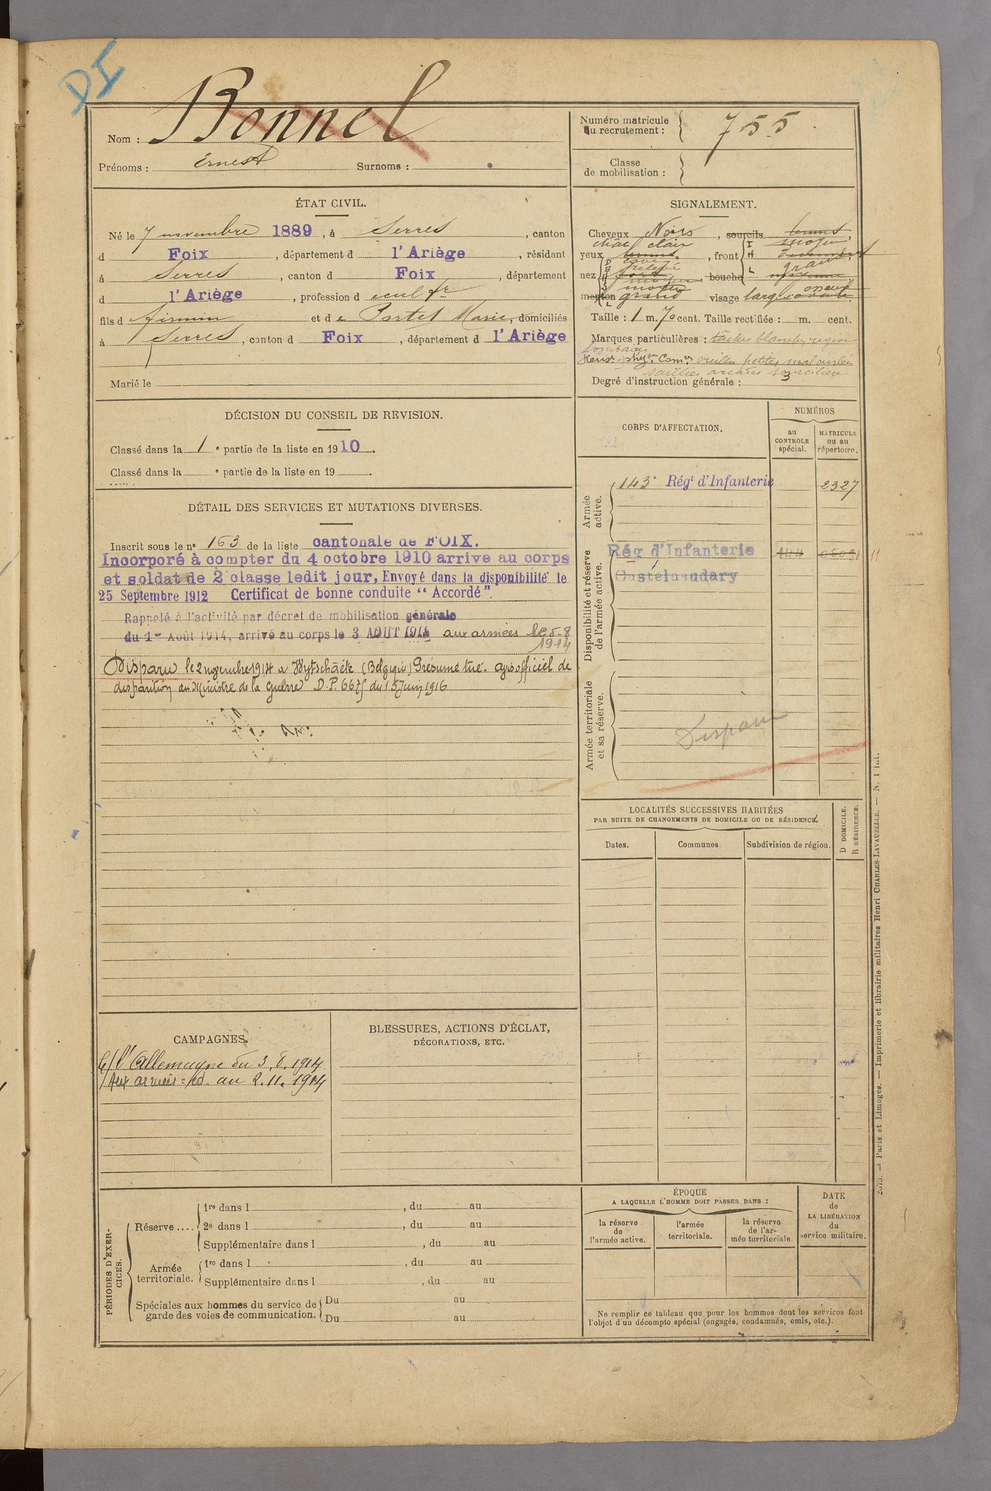 DI
Nom : Bonnel
Prénoms : Ernest Surnoms :
Numéro matricule
au recrutement : 755
Classe
de mobilisation :
ÉTAT CIVIL.
Né le 7 novembre 1889, à Serres, canton
d Foix, département d l'Ariège, résidant
à Serres, canton d Foix, département
d l'Ariège, profession d
fils d Firmin et d e Portet Marie, domiciliés
à Serres, canton d Foix, département d l'Ariège
Marié le
SIGNALEMENT.
Cheveux Noirs, sourcils
yeux, front
nez, bouche
menton grand visage
Taille : 1 m. 70 cent. Taille rectifiée : m. cent.
Marques particulières : taches blanches région
lombaire
Rens. phys. Com. oreilles petites mal ourlées
saillies arcades sourcilières
Degré d'instruction générale : 3
DÉCISION DU CONSEIL DE REVISION.
Classé dans la 1 e partie de la liste en 1910.
Classé dans la e partie de la liste en 19
DÉTAIL DES SERVICES ET MUTATIONS DIVERSES.
Inscrit sous le n° 163 de la liste cantonale de FOIX.
Incorporé à compter du 4 octobre 1910 arrive au corps
et soldat de 2e classe ledit jour, Envoyé dans la disponibilité le
25 Septembre 1912 Certificat de bonne conduite "Accordé".
Rappelé à l'activité par décret de mobilisation générale
du 1er Août 1914, arrivé au corps le 3 AOUT 1914 aux armées le 5.8
1914
Disparu le 2 novembre 1914 à Wytschaëte (Belgique) Présumé tué. Avis officiel de
disparition du Ministre de la guerre D.P. 6675 du 15 juin 1916
CORPS D'AFFECTATION.
NUMÉROS
au
CONTROLE
spécial.
MATRICULE
ou au
répertoire.
Armée
active.
143e Régt d'Infanterie 2327
Disponibilité et réserve
de l'armée active.
Rég d'Infanterie
Castelnaudary
Armée territoriale
et sa réserve.
Disparu
LOCALITÉS SUCCESSIVES HABITÉES
PAR SUITE DE CHANGEMENTS DE DOMICILE OU DE RÉSIDENCE.
Dates. Communes Subdivision de région.
D DOMICILE.
R RÉSIDENCE.
CAMPAGNES.
C/ l'Allemagne du 3.8.1914
au 2.11.1914
BLESSURES, ACTIONS D'ÉCLAT,
DÉCORATIONS, ETC.
PÉRIODES D'EXER-
CICES.
Réserve ....
1re dans l , du au
2e dans l , du au
Supplémentaire dans l , du au
Armée
territoriale.
1re dans l , du au
Supplémentaire dans l , du au
Spéciales aux hommes du service de
garde des voies de communication.
Du au
Du au
ÉPOQUE
A LAQUELLE L'HOMME DOIT PASSER DANS :
la réserve
de
l'armée active.
l'armée
territoriale.
la réserve
de l'ar-
mée territoriale.
DATE
de
LA LIBÉRATION
du
service militaire.
Ne remplir ce tableau que pour les hommes dont les services font
l'objet d'un décompte spécial (engagés, condamnés, omis, etc.).
Paris et Limoges. — Imprimerie et librairie militaires Henri CHARLES-LAVAUZELLE.